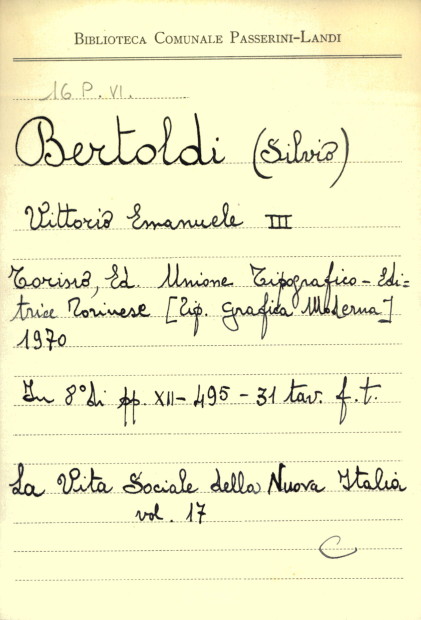 BIBLIOTECA COMUNALE PASSERINI-LANDI
16 P. VI.
Bertoldi (Silvio)
Vittorio Emanuele III
Torino, Ed. Unione Tipografico-Edi=
trice Torinese [Tip. Grafica Moderna]
1970
In 8° di pp. XII-495-31 tav. f.t.
La Vita Sociale della Nuova Italia
vol. 17
C